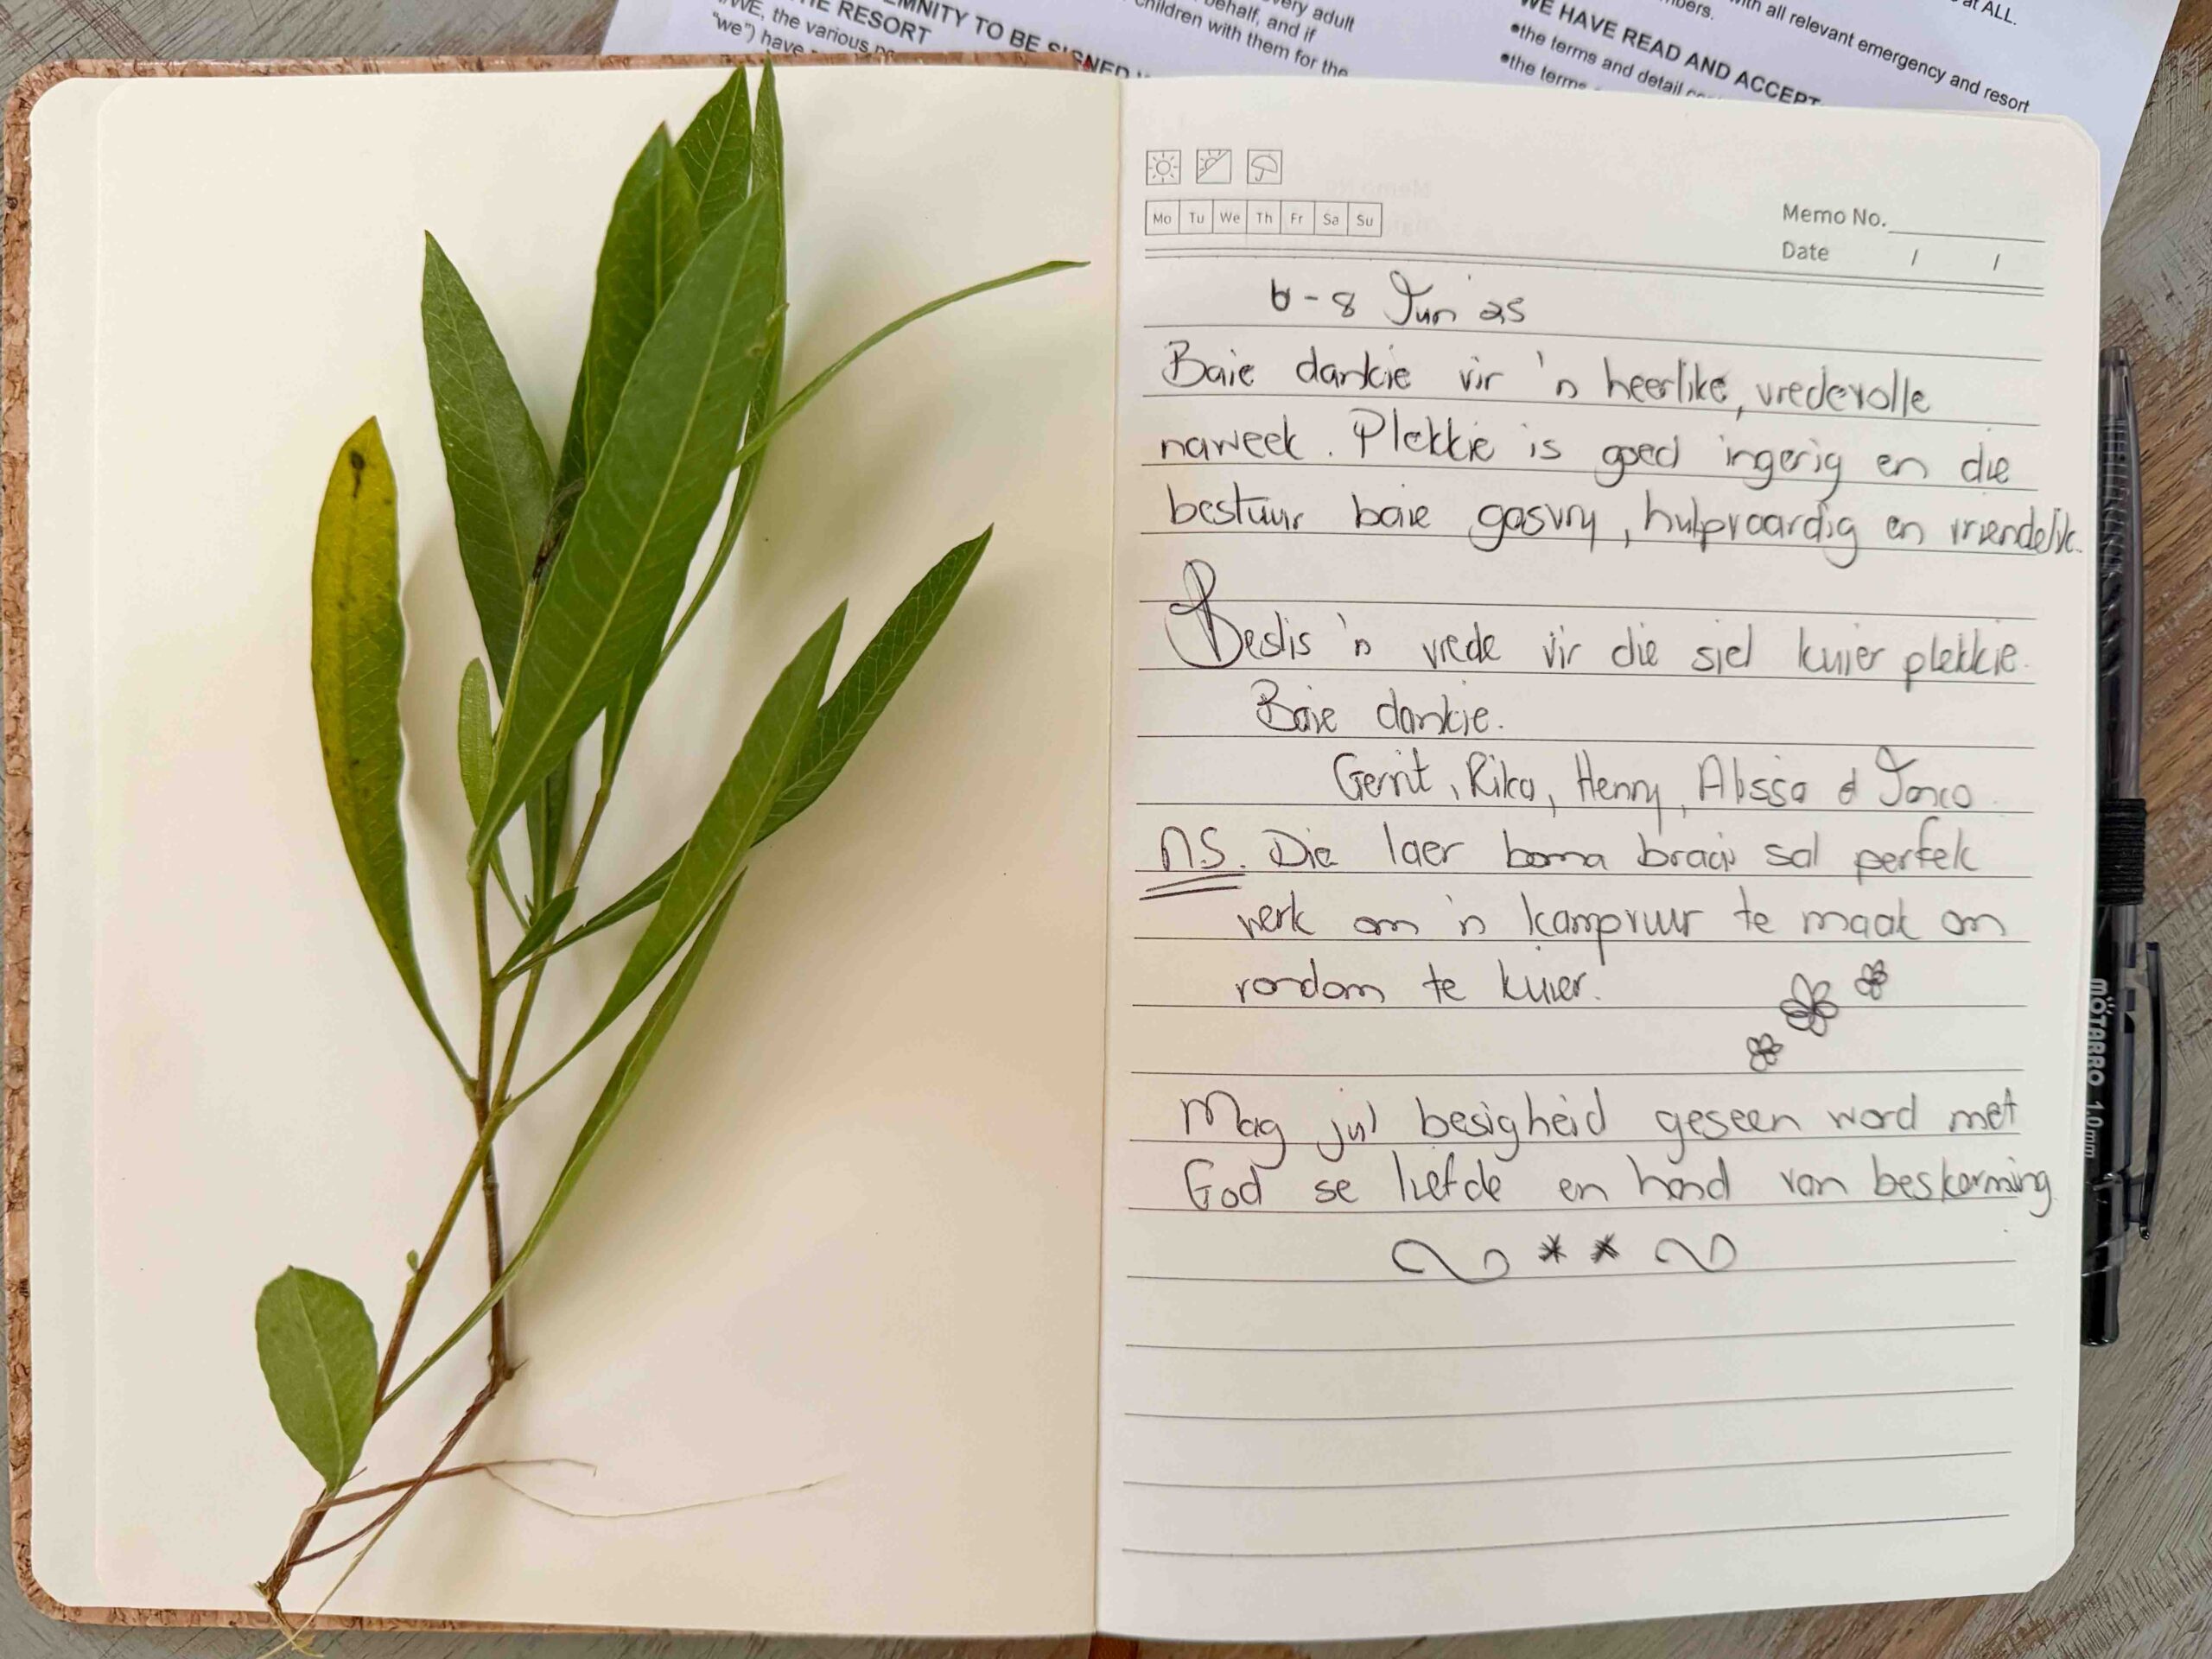 THE RESORT
MNITY TO BE SIGNED
WE, the various
"we") have
very adult
behalf, and if
children with them for the
at ALL.
with all relevant emergency and resort
WE HAVE READ AND ACCEPT
•the terms and detail
•the terms
Mo Tu We Th Fr Sa Su
Memo No.
Date / /
6-8 Jun '25
Baie dankie vir 'n heerlike, vredevolle
naweek. Plekkie is goed ingerig en die
bestuur baie gasvry, hulpvaardig en vriendelik.
Beslis 'n vrede vir die siel kuier plekkie.
Baie dankie.
Gerrit, Rika, Henry, Alissa & Janco.
NS. Die laer boma braai sal perfek
werk om 'n kampvuur te maak om
rondom te kuier.
Mag jul besigheid geseen word met
God se liefde en hand van beskerming
MOTARRO 1.0mm